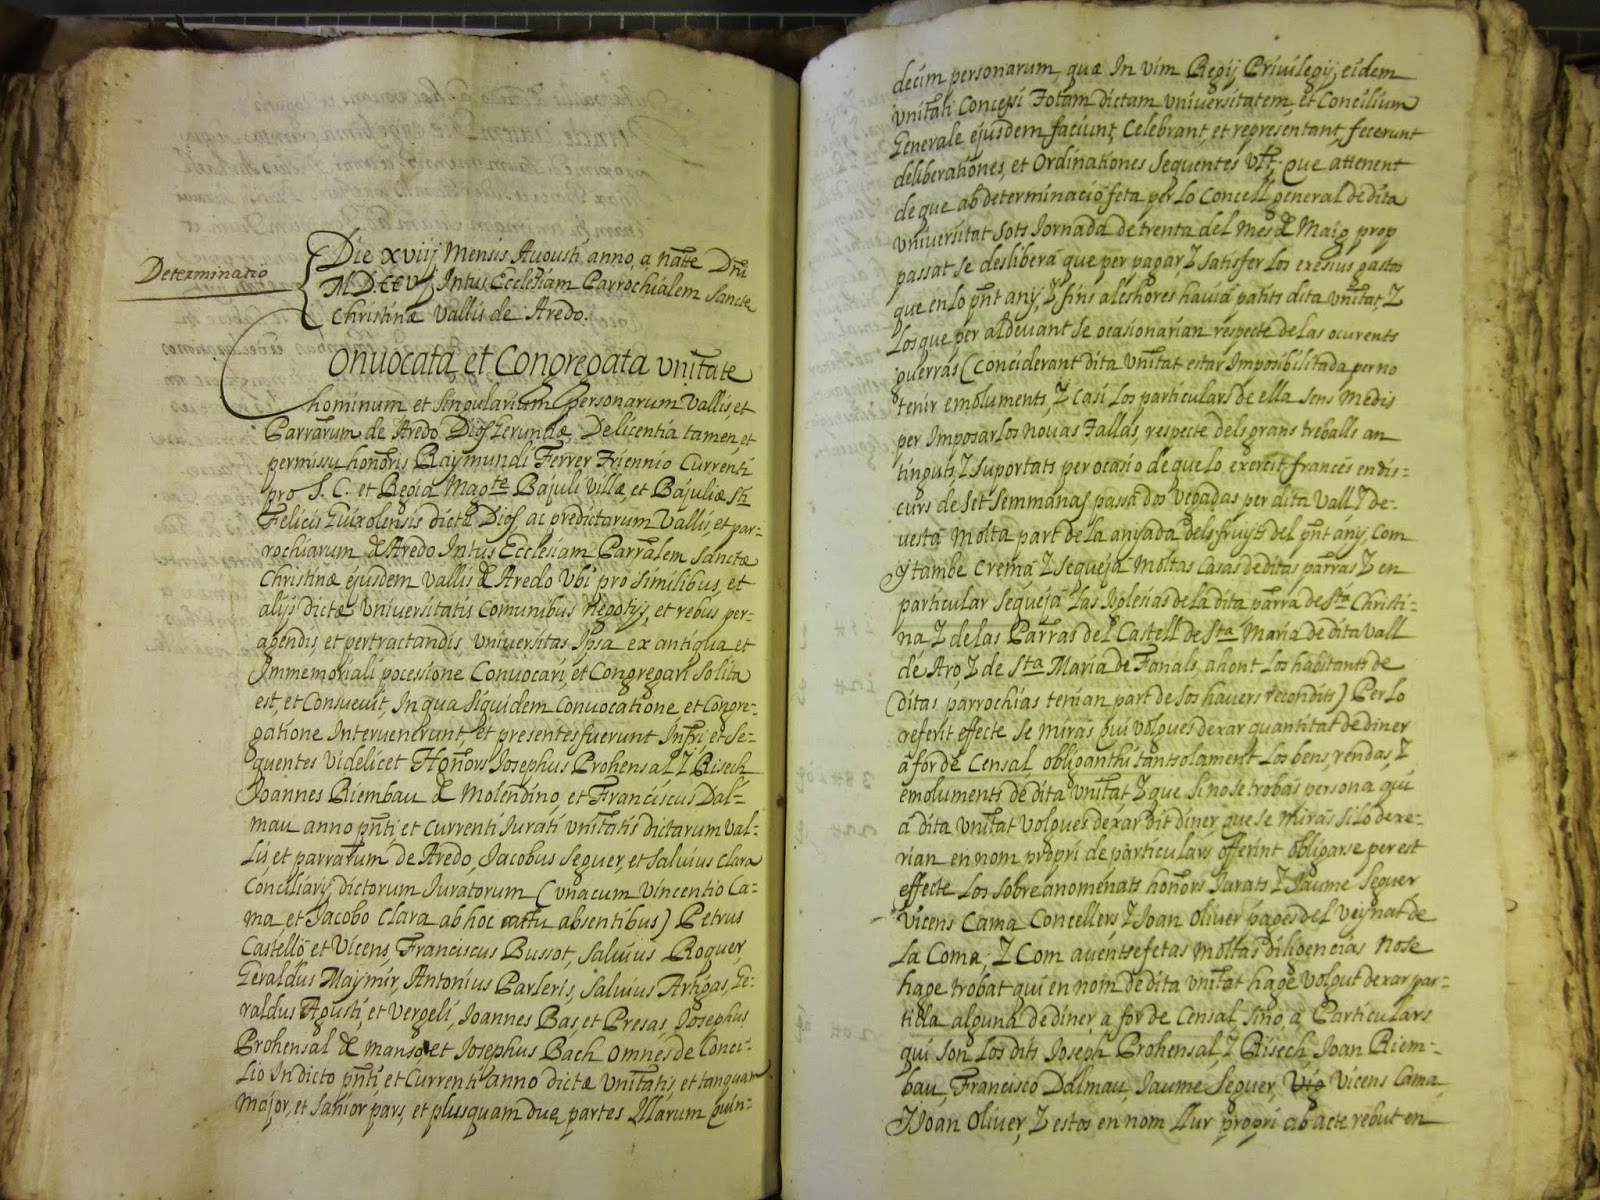 Determinatio
Die xviij Mensis Augusti anno, a natte Dni
MDCCV, Intus Ecclesiam Parrochialem Sancte
Christinæ Vallis de Aredo.
Convocata, et Congregata Unitate
hominum et singularium personarum Vallis, et
Parrarum de Aredo Diof Gerundæ, De licentia tamen, et
permissu honoris Raymundi Ferrer Triennio Currenti
pro S. C. et Regia Magte Bajuli Villæ, et Bajuliæ Sti
Felicis Guixolensis dictæ Diof, ac predictarum Vallis, et par-
rochiarum de Aredo Intus Ecclesiam Parralem Sanctæ
Christinæ ejusdem Vallis de Aredo Ubi pro similibus, et
alijs dictæ Universitatis Comunibus Negotijs, et rebus per-
agendis, et pertractandis, Universitas Ipsa ex antiqua et
Immemoriali pocessione Convocari, et Congregari solita
est, et Consuevit, In qua siquidem Convocatione et Congre-
gatione Intervenerunt, et presentes fuerunt Infri et Se-
quentes Videlicet Honors Josephus Prohensal, y Risech
Joannes Riembau de Molendino, et Franciscus Dal-
mau anno pnti et Currenti Jurati Unitatis dictarum Val-
lis, et parrarum de Aredo, Jacobus Seguer, et Salvius Clara
Conciliarij dictorum Juratorum (Unacum Vincentio Ca-
ma, et Jacobo Clara ab hoc actu absentibus) Petrus
Castelló et Vicens, Franciscus Bussot, Salvius Roquer
Geraldus Maymir, Antonius Parleris, Salvius Artigas, Ge-
raldus Agusti, et Vergeli, Joannes Bas et Presas, Josephus
Prohensal de Manso, et Josephus Bach omnes de Conci-
lio Indicto pnti et Currenti anno dictæ Unitatis, et tanquam
major, et sanior pars, et plusquam duæ partes Illarum quin-
decim personarum, quæ In vim Regij Privilegij, eidem
Unitati Concessi Totam dictam Universitatem, et Concilium
Generale ejusdem faciunt, Celebrant, et representant, fecerunt
deliberationes, et Ordinationes Sequentes Vtt. Que attenent
de que ab determinació feta per lo Concell general de dita
Universitat sots Jornada de trenta del Mes de Maig prop
passat se desliberá que per pagar, y satisfer los exesius gastos
que en lo pnt any, y fins aleshores haviá patits dita Unitat, y
los que per aldevant se ocasionarian respecte de las ocurents
guerras (Conciderant dita Unitat estar Imposibilitada per no
tenir emoluments, y Casi los particulars de ella sens Medis
per Imposarlos Novas Tallas, respecte dels grans treballs an
tinguts, y suportats per ocasio de que lo exercit frances en dis-
curs de set semmanas passá dos vegadas per dita Vall, y de-
vestá Molta part de la anyada dels fruyts del pnt any, Com
y tambe Cremá, y sequejá Moltas Casas de ditas parras, y en
particular sequejá las Iglesias de la dita parra de Sta Christi-
na, y de las Parras del Castell de Sta Maria de dita Vall
de Aro, y de Sta Maria de Fanals, ahont los habitants de
ditas parrochias tenian part de sos havers recondits) Per lo
referit effecte se mirás qui volgues dexar quantitat de diner
á for de Censal, obliganthi tantsolament los bens, rendas, y
emoluments de dita Unitat, y que si no se trobás persona qui
á dita Unitat volgues dexar dit diner que se mirás si lo dexa-
rian en nom propri de particulars offerint obligarse per est
effecte los sobreanomenats honors Jurats, y Jaume Seguer
Vicens Cama Concellers, y Joan Oliver pages del Veynat de
la Coma. y Com aventse fetas moltas diligencias no se
hage trobat qui en nom de dita Unitat hage volgut dexar par-
tida alguna de diner, a for de Censal, sino, á Particulars
qui son los dits Joseph Prohensal, y Risech, Joan Riem-
bau, Francisco Dalmau, Jaume Seguer, Vicens Cama,
y Joan Oliver, y estos en nom llur propri ab acte rebut en